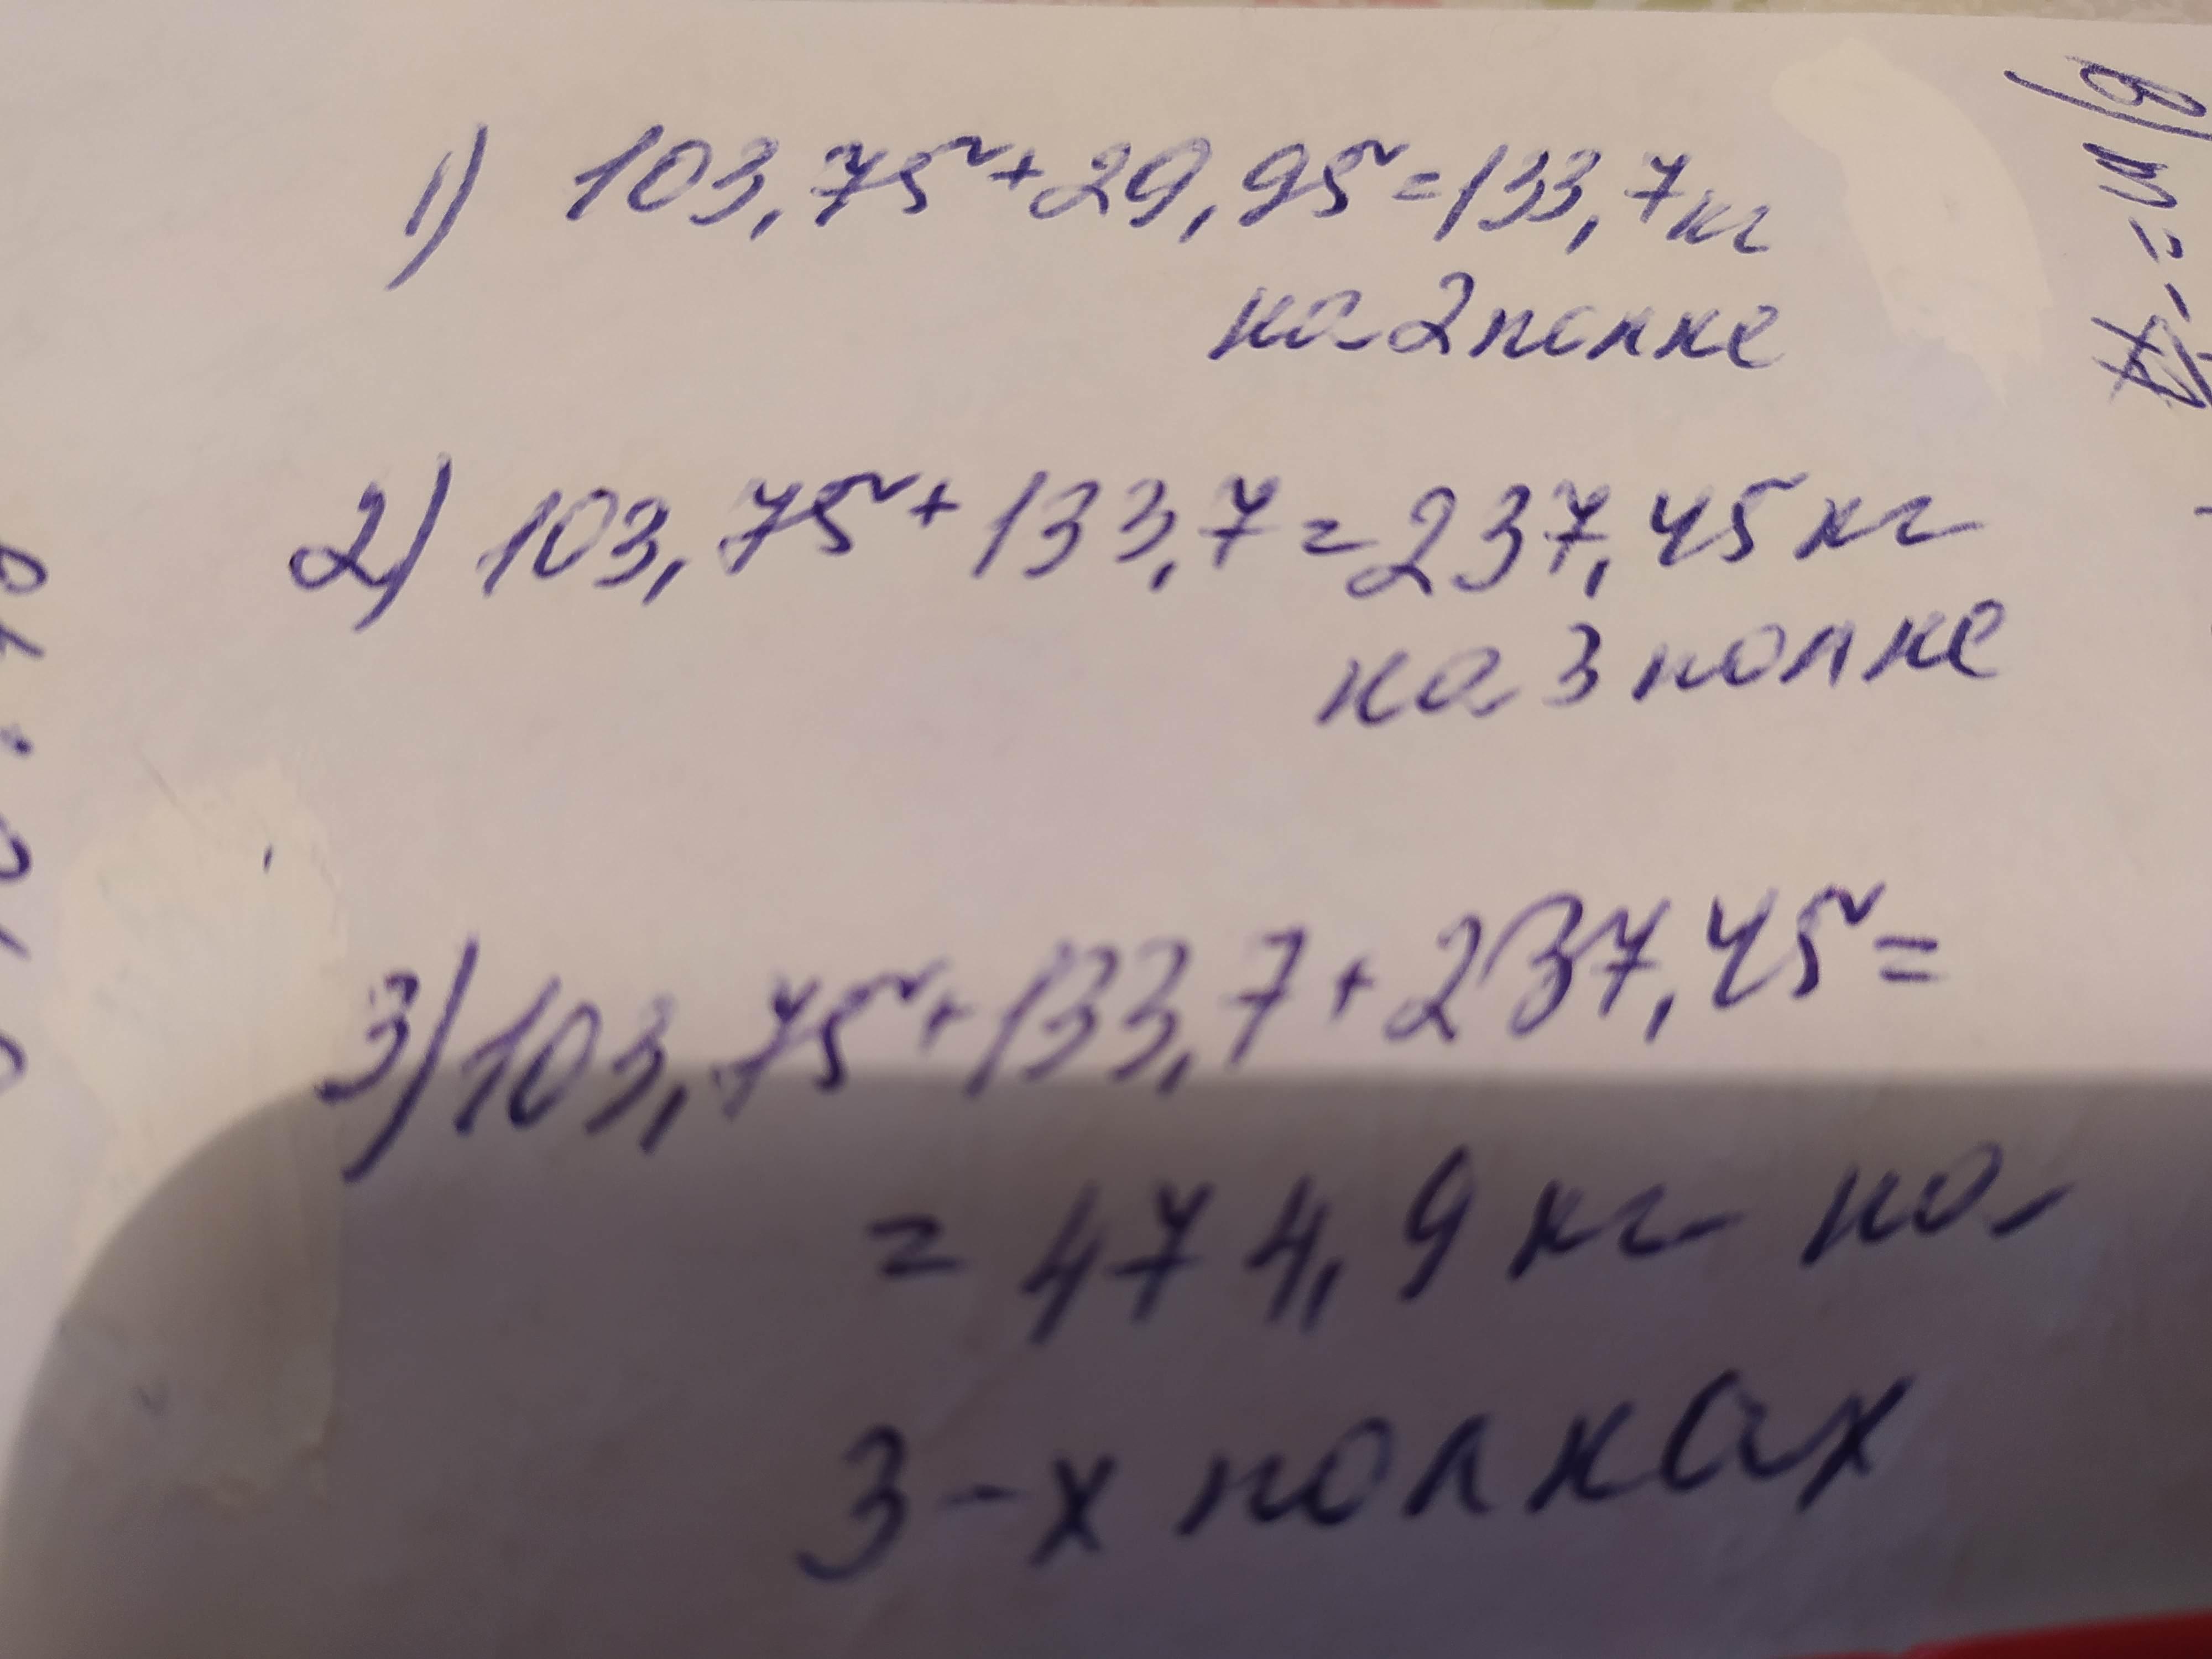 1) 103,75+29,95=133,7кг
на 2 полке
2) 103,75+133,7=237,45кг
на 3 полке
3) 103,75+133,7+237,45=
=474,9кг на
3-х полках